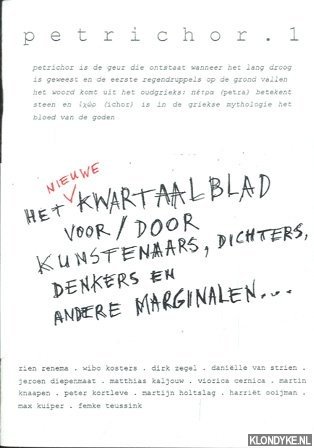 petrichor.1
petrichor is de geur die ontstaat wanneer het lang droog
is geweest en de eerste regendruppels op de grond vallen
het woord komt uit het oudgrieks: πέτρα (petra) betekent
steen en ἰχώρ (ichor) is in de griekse mythologie het
bloed van de goden
NIEUWE
HET KWARTAALBLAD
VOOR/DOOR
KUNSTENAARS, DICHTERS,
DENKERS EN
ANDERE MARGINALEN...
zien zenema . wibo kosters . dirk zegel . daniëlle van strien .
jeroen diepenmaat . matthias kaljouw . viorica cernica . martin
knaapen . peter kortleve . martijn holtslag . harriët ooijman .
max kuiper . femke teussink
KLONDYKE.NL